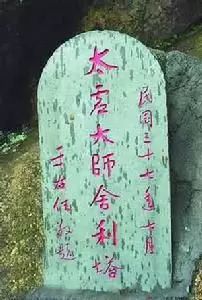 民國三十七年月
太虛大師舍利塔
于右任敬題